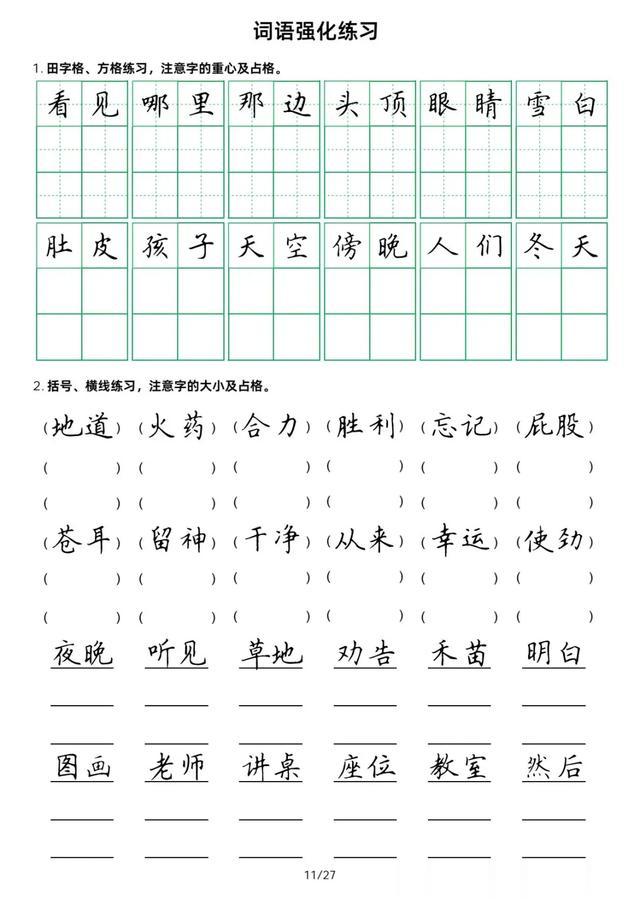 词语强化练习
1. 田字格、方格练习，注意字的重心及占格。
看见 哪里 那边 头顶 眼睛 雪白
肚皮 孩子 天空 傍晚 人们 冬天
2. 括号、横线练习，注意字的大小及占格。
（地道）（火药）（合力）（胜利）（忘记）（屁股）
（ ）（ ）（ ）（ ）（ ）（ ）
（ ）（ ）（ ）（ ）（ ）（ ）
（苍耳）（留神）（干净）（从来）（幸运）（使劲）
（ ）（ ）（ ）（ ）（ ）（ ）
（ ）（ ）（ ）（ ）（ ）（ ）
夜晚 听见 草地 劝告 禾苗 明白
图画 老师 讲桌 座位 教室 然后
11/27